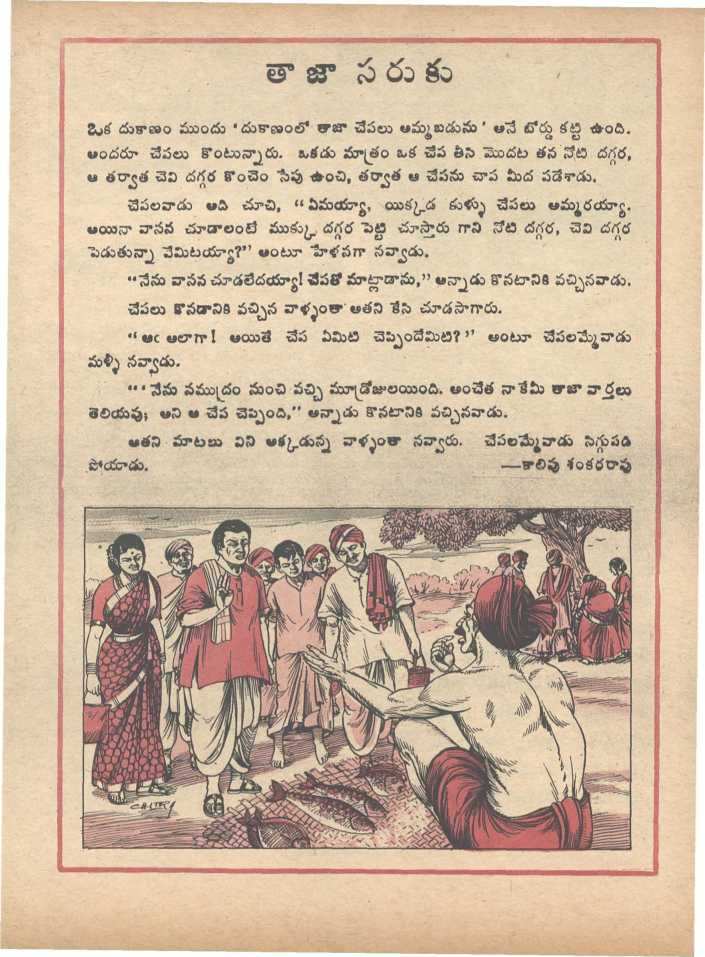 తాజా సరుకు
ఒక దుకాణం ముందు ‘దుకాణంలో తాజా చేపలు అమ్మబడును’ అనే బోర్డు కట్టి ఉంది.
అందరూ చేపలు కొంటున్నారు. ఒకడు మాత్రం ఒక చేప తీసి మొదట తన నోటి దగ్గర,
ఆ తర్వాత చెవి దగ్గర కొంచెం సేపు ఉంచి, తర్వాత ఆ చేపను చాప మీద పడేశాడు.
చేపలవాడు అది చూచి, “ఏమయ్యా, యిక్కడ కుళ్ళు చేపలు అమ్మరయ్యా.
అయినా వాసన చూడాలంటే ముక్కు దగ్గర పెట్టి చూస్తారు గాని నోటి దగ్గర, చెవి దగ్గర
పెడుతున్నా వేమిటయ్యా?” అంటూ హేళనగా నవ్వాడు.
“నేను వాసన చూడలేదయ్యా! చేపతో మాట్లాడాను,” అన్నాడు కొనటానికి వచ్చినవాడు.
చేపలు కొనడానికి వచ్చిన వాళ్ళంతా అతని కేసి చూడసాగారు.
“ఆఁ అలాగా! అయితే చేప ఏమిటి చెప్పిందేమిటి?” అంటూ చేపలమ్మేవాడు
మళ్ళీ నవ్వాడు.
“‘నేను సముద్రం నుంచి వచ్చి మూడ్రోజులయింది. అంచేత నాకేమీ తాజా వార్తలు
తెలియవు; అని ఆ చేప చెప్పింది,” అన్నాడు కొనటానికి వచ్చినవాడు.
అతని మాటలు విని అక్కడున్న వాళ్ళంతా నవ్వారు. చేపలమ్మేవాడు సిగ్గుపడి
పోయాడు. —కాలివు శంకరరావు